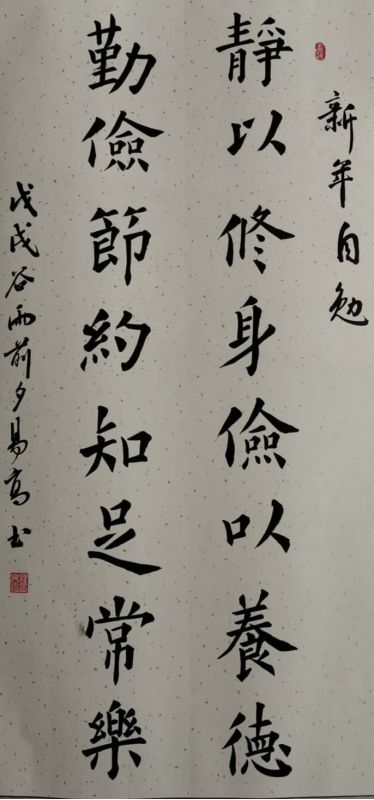 新年自勉
靜以修身儉以養德
勤儉節約知足常樂
戊戌谷雨前夕易高书